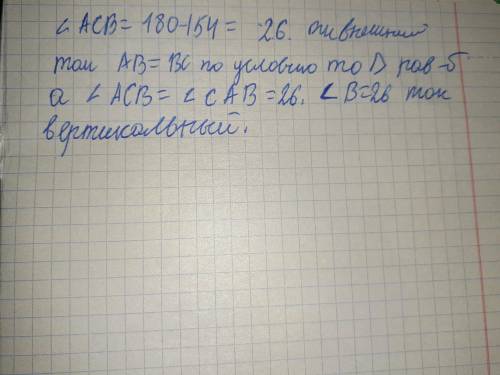 ∠ACB = 180-154 = 26. смвнешний
так AB = BC по условию то D рав-б
а ∠ACB = ∠CAB = 26. ∠B = 26 так
вертикальный.